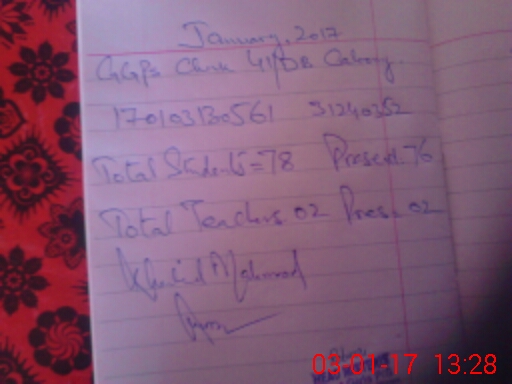 January, 2017
GGPS Chak 41/DB Colony
170103130561 31240352
Total Students = 78 Present 76
Total Teachers 02 Pres. 02
Khalid Mahmood
03-01-17 13:28